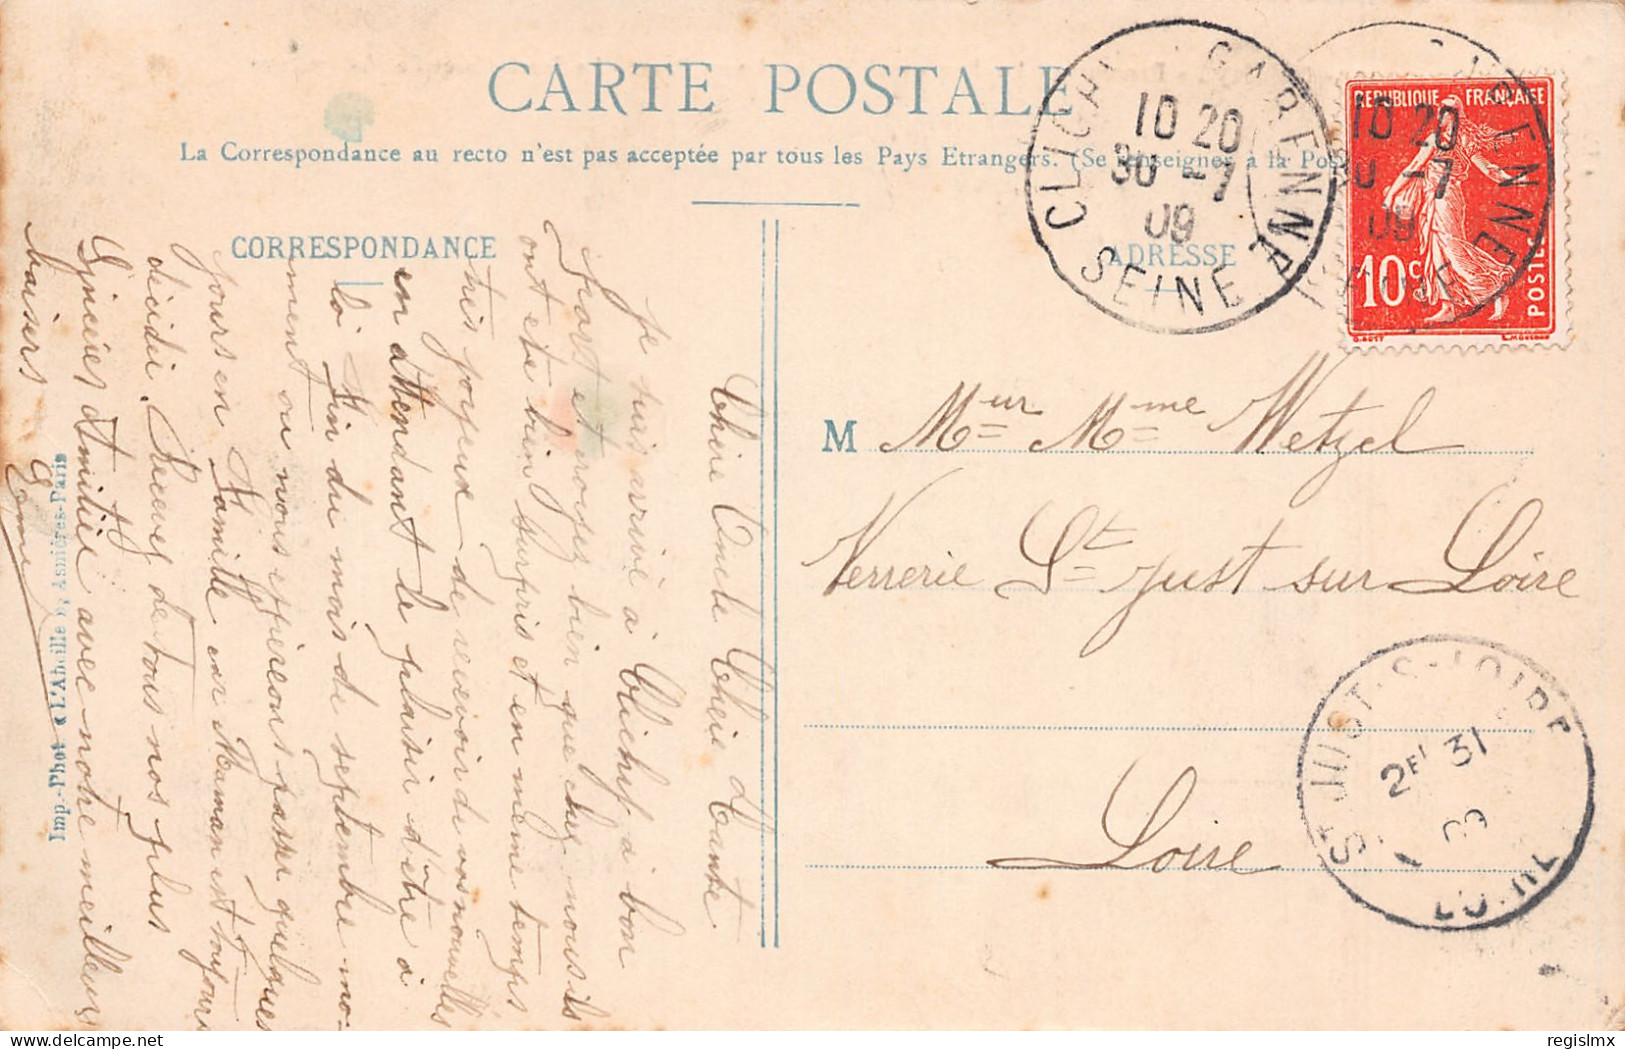 CARTE POSTALE
La Correspondance au recto n'est pas acceptée par tous les Pays Etrangers. (Se renseigner à la Pos
CORRESPONDANCE
ADRESSE
Chère Oncle Chère Tante
Je suis arrivé à Clichy à bon
port et croyez bien que chez nous ils
ont ete bien surpris et en même temps
très joyeux de recevoir de vos nouvelles
en attendant le plaisir d'être à
la fin du mois de septembre mo-
ment ou nous passer quelques
jours en Famille car Maman est toujours
décidé. Recevez de tous nos plus
Sincères Amitiés avec notre meilleurs
baisers
Imp.-Phot. "L'Abeille", Asnières-Paris
M Meur Mme Wetzel
Verrerie St Just sur Loire
Loire
CLICHY GARENNE
10 20
30 -7
09
SEINE
GARENNE
10 20
30 -7
09
SEINE
REPUBLIQUE FRANÇAISE
10c
POSTES
O. ROTY
L. MOUCHON
ST JUST-S-LOIRE
2E 31
09
LOIRE
regislmx